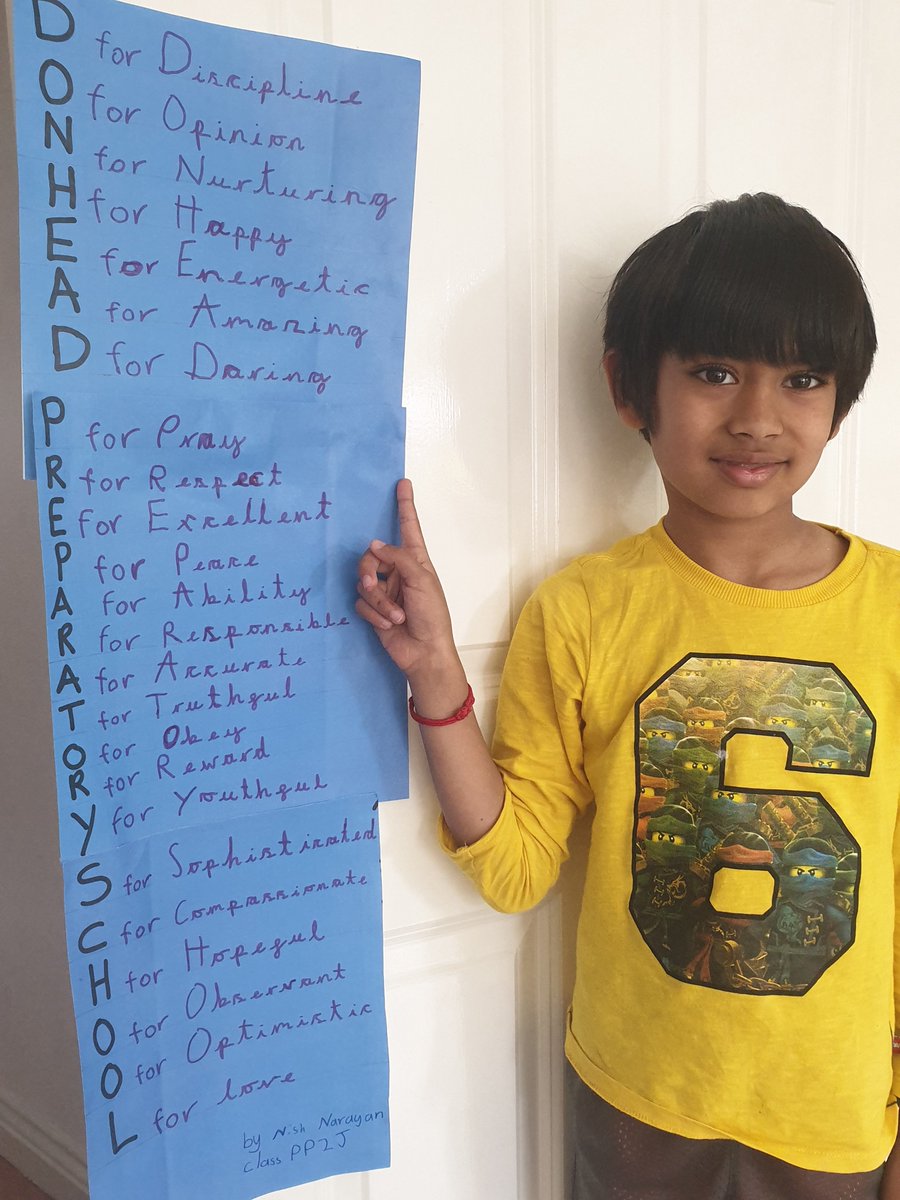 D for Discipline
O for Opinion
N for Nurturing
H for Happy
E for Energetic
A for Amazing
D for Daring
P for Pray
R for Respect
E for Excellent
P for Peace
A for Ability
R for Responsible
A for Accurate
T for Truthful
O for Obey
R for Reward
Y for Youthful
S for Sophisticated
C for Compassionate
H for Hopeful
O for Observant
O for Optimistic
L for love
by Nish Narayan
class PP2J
6